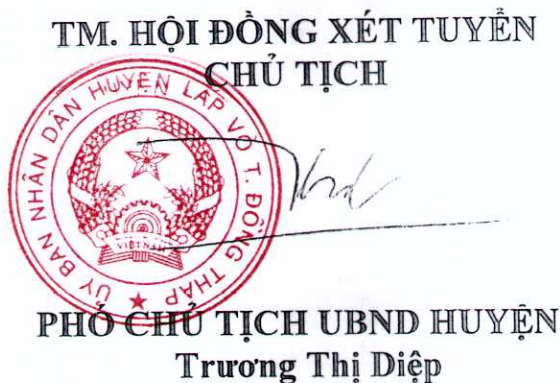 TM. HỘI ĐỒNG XÉT TUYỂN
CHỦ TỊCH
ỦY BAN NHÂN DÂN HUYỆN LẤP VÒ T. ĐỒNG THÁP
VIỆT NAM
PHÓ CHỦ TỊCH UBND HUYỆN
Trương Thị Diệp